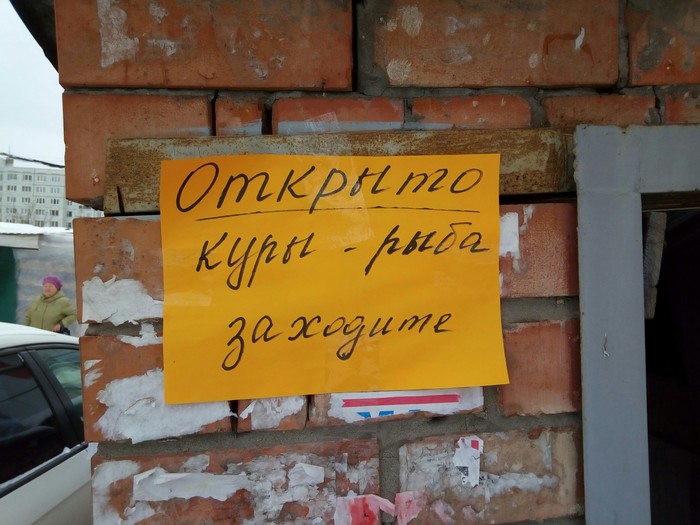 Открыто
куры - рыба
заходите